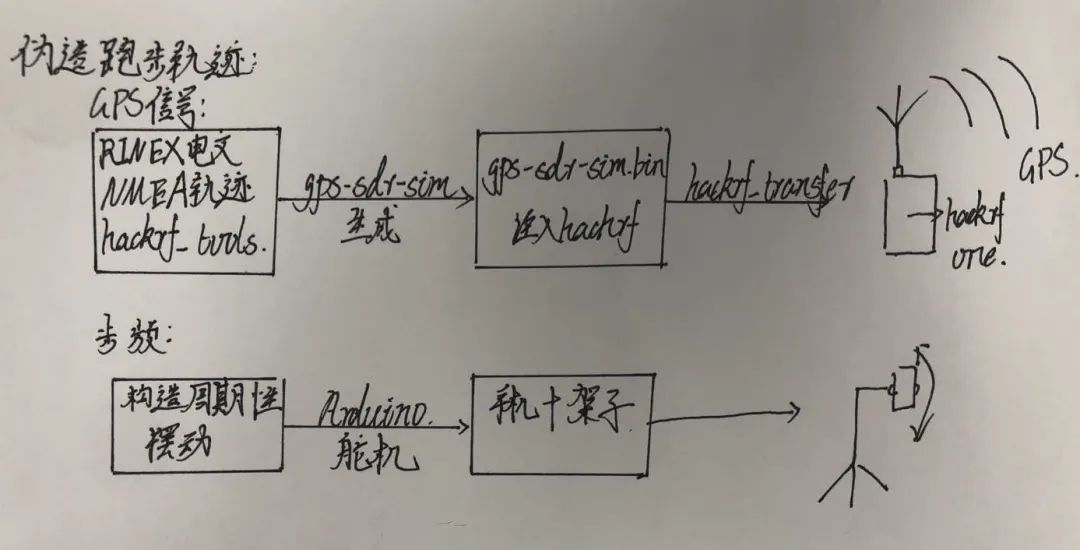 伪造跑步轨迹:
GPS信号:
RINEX电文
NMEA轨迹
hackrf_tools.
gps-sdr-sim
生成
gps-sdr-sim.bin
注入hackrf
hackrf_transfer
GPS.
hackrf
one.
步频:
构造周期性
摆动
Arduino.
舵机
手机+架子